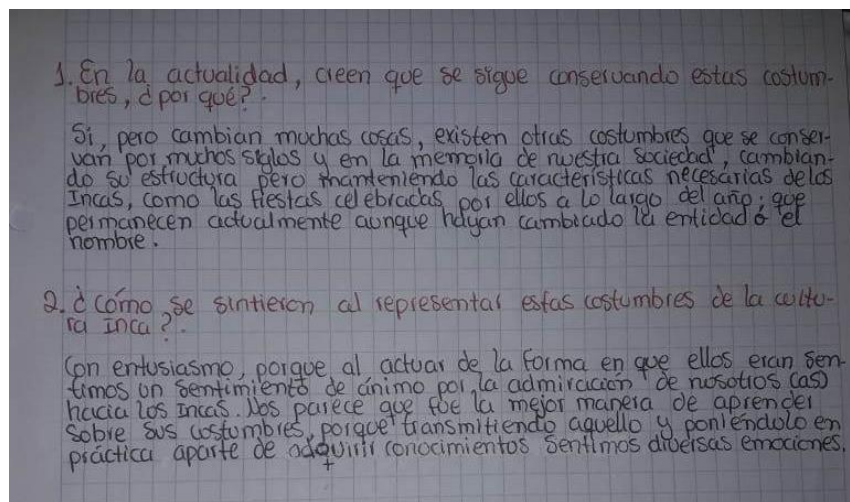 1. En la actualidad, creen que se sigue conservando estas costum-
bres, ¿por qué?.
Si, pero cambian muchas cosas, existen otras costumbres que se conser-
van por muchos siglos y en la memoria de nuestra sociedad, cambian-
do su estructura pero manteniendo las características necesárias de los
Incas, como las fiestas celebradas por ellos a lo largo del año; que
permanecen actualmente aunque hayan cambiado la entidad ó el
nombre.
2. ¿Cómo se sintieron al representar estas costumbres de la cultu-
ra Inca?.
Con entusiasmo, porque al actuar de la forma en que ellos eran sen-
timos un sentimiento de ánimo por la admiración de nosotros (as)
hacia los Incas. Nos parece que fue la mejor manera de aprender
sobre sus costumbres, porque transmitiendo aquello y poniéndolo en
práctica aparte de adquirir conocimientos sentimos diversas emociones.